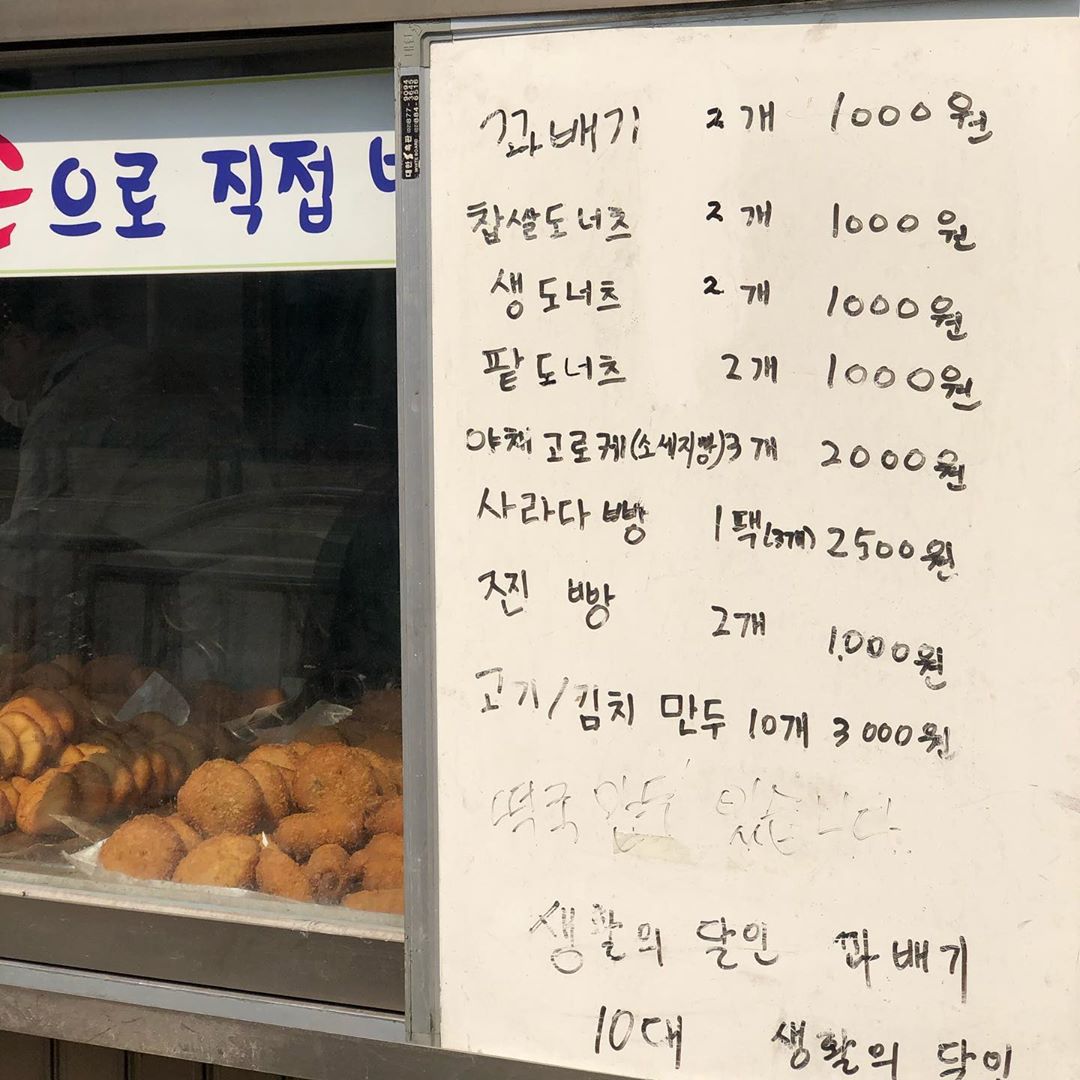 손으로 직접
대한흑판
WHITE BOARD
꽈배기 2개 1000원
찹쌀도너츠 2개 1000원
생도너츠 2개 1000원
팥도너츠 2개 1000원
야채고로케(소세지빵)3개 2000원
사라다빵 1팩(3개) 2500원
찐빵 2개 1,000원
고기/김치 만두 10개 3000원
떡국 만두 있습니다
생활의 달인 꽈배기
10대 생활의 달인